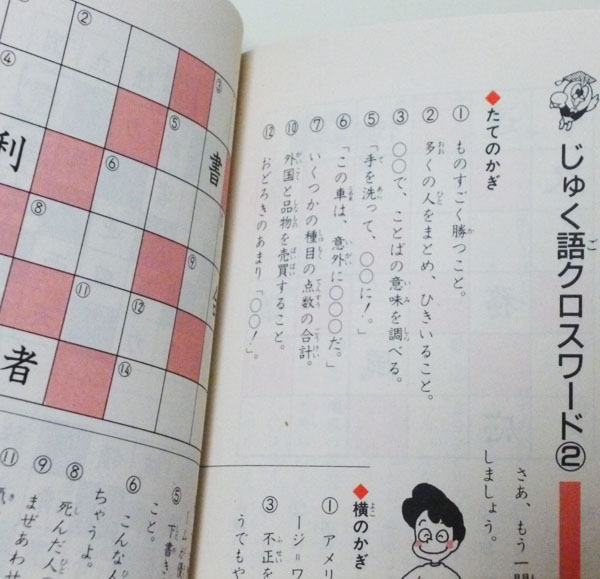 じゅく語クロスワード②
さあ、もう一
しましょう。
◆たてのかぎ
①ものすごく勝つこと。
②多くの人をまとめ、ひきいること。
③○○で、ことばの意味を調べる。
⑤「手を洗って、○○に!。」
⑥「この車は、意外に○○○だ。」
⑦いくつかの種目の点数の合計。
⑩外国と品物を売買すること。
⑫おどろきのあまり「○○!」。
◆横のかぎ
①アメリ
ージ=ワ
③不正を
うでもや
②
③
④
⑤
利
書
⑥
⑧
⑨
⑪
⑫
者
⑭
⑤
下書き
こと。
⑥こんな人
ちゃうよ。
⑧死んだ人
⑨まぜあわせ
⑪